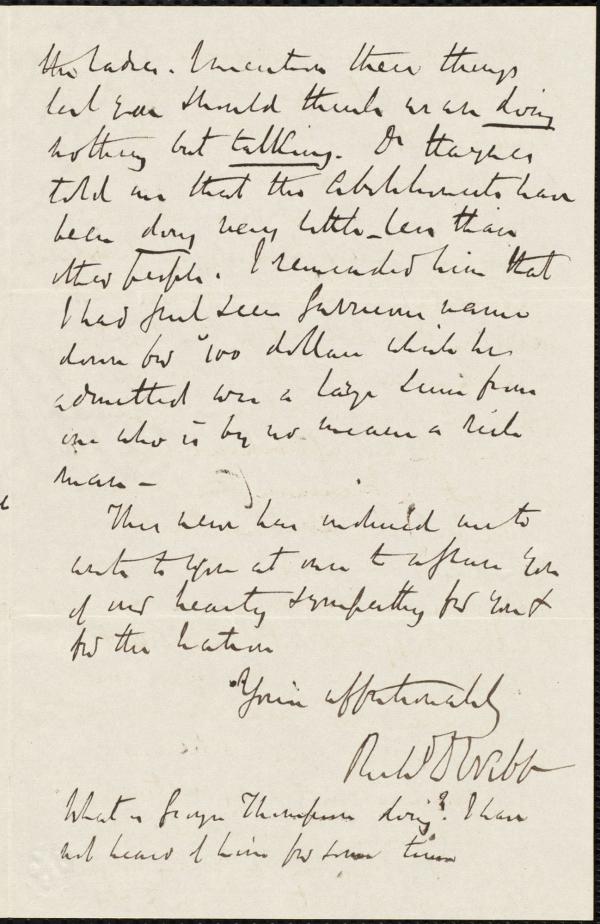 the ladies. I mention these things
lest you should think we are doing
nothing but talking. Dr Haynes
told me that the Abolitionists have
been doing very little – less than
other people. I reminded him that
I had just seen Garrison's name
down for 100 dollars which he
admitted was a large sum from
one who is by no means a rich
man –
This news has induced me to
write to you at once to assure you
of our hearty sympathy for you &
for the nation
Yours affectionately
Richd D Webb
What is George Thompson doing? I have
not heard of him for some time